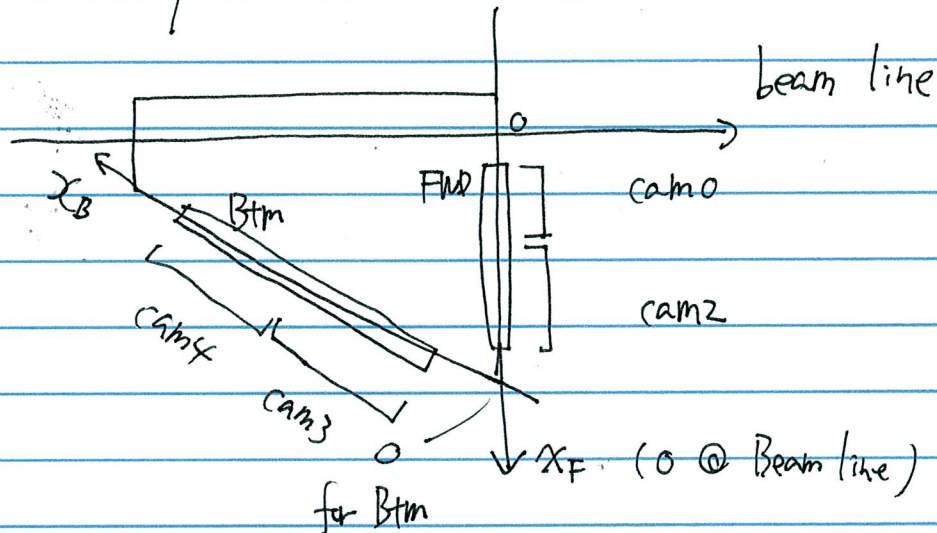 beam line
0
FWD
cam0
x_B
Btm
cam2
cam4
cam3
0
for Btm
x_F. (0 @ Beam line)